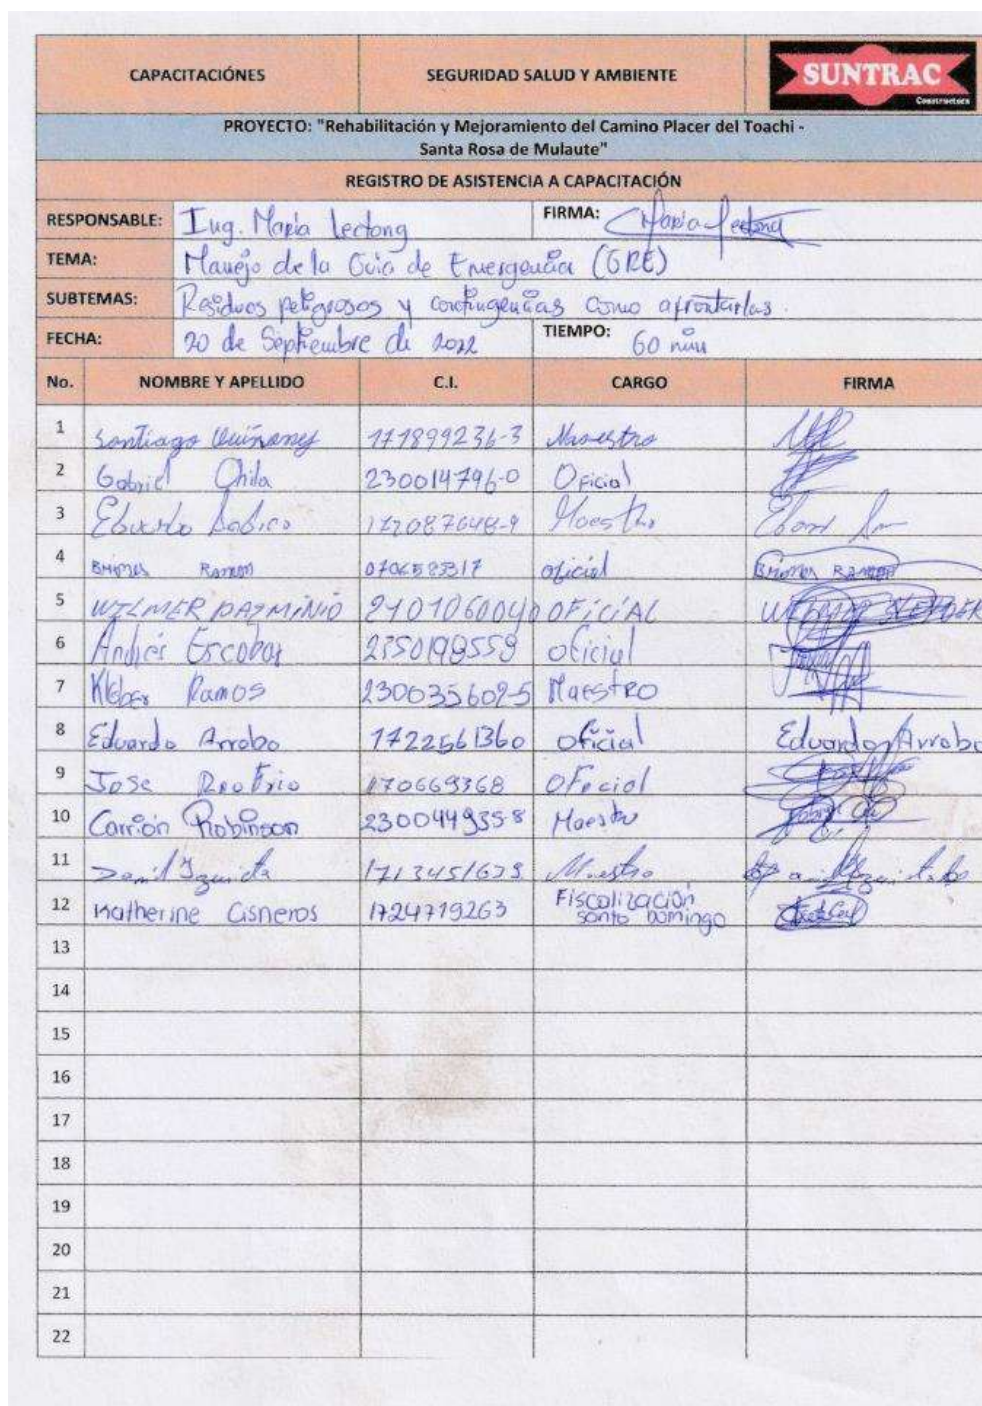 CAPACITACIÓNES
SEGURIDAD SALUD Y AMBIENTE
SUNTRAC
Constructora
PROYECTO: "Rehabilitación y Mejoramiento del Camino Placer del Toachi -
Santa Rosa de Mulaute"
REGISTRO DE ASISTENCIA A CAPACITACIÓN
RESPONSABLE: Ing. María Lectong FIRMA:
TEMA: Manejo de la Guia de Emergencia (GRE)
SUBTEMAS: Residuos peligrosos y contingencias como afrontarlas.
FECHA: 20 de Septiembre de 2022 TIEMPO: 60 min
No. NOMBRE Y APELLIDO C.I. CARGO FIRMA
1 Santiago 171899236-3 Maestro
2 Gabriel Chila 230014796-0 Oficial
3 Maestro
4 Ramon oficial
5 WILMER PAZMINIO 2101060040 OFICIAL
6 Andrés Escobar 2350198559 oficial
7 Kleber Ramos 230035602-5 Maestro
8 Eduardo Arrobo 1722561360 oficial Eduardo Arrobo
9 Jose 170669368 Oficial
10 Carrión Robinson 230044935-8 Maestro
11 1713451623 Maestro
12 Katherine Cisneros 1724719263 Fiscalización
santo Domingo
13
14
15
16
17
18
19
20
21
22